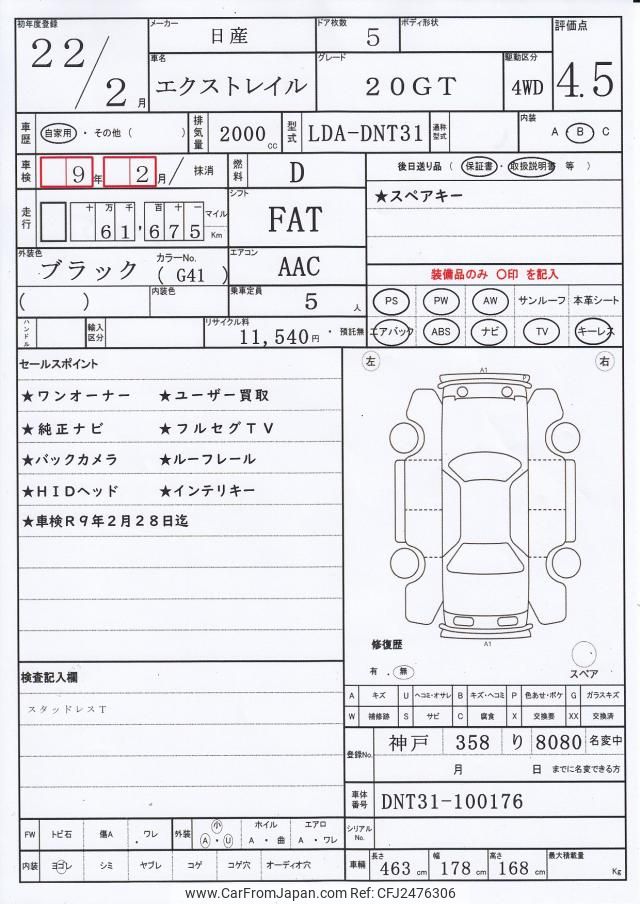 初年度登録 メーカー ドア枚数 ボディ形状 評価点
22/2月 日産 5 4.5
車名 グレード 駆動区分
エクストレイル 20GT 4WD
車歴 自家用・その他( ) 排気量 2000cc 型式 LDA-DNT31 通称型式 内装 A・B・C
車検 9年 2月/ 抹消 燃料 D 後日送り品 (保証書・取扱説明書 等 )
走行 十万千百十一 61,675 マイル Km シフト FAT ★スペアキー
外装色 ブラック カラーNo. (G41) エアコン AAC 装備品のみ ○印 を記入
( ) 内装色 乗車定員 5人 PS PW AW サンルーフ 本革シート
ハンドル 輸入区分 リサイクル料 11,540円・預託無 エアバック ABS ナビ TV キーレス
セールスポイント 左 右
★ワンオーナー ★ユーザー買取 A1
★純正ナビ ★フルセグTV
★バックカメラ ★ルーフレール
★HIDヘッド ★インテリキー
★車検R9年2月28日迄
A1
修復歴
有・無 スペア
検査記入欄
スタッドレスT
A キズ U ヘコミ・オサレ B キズ・ヘコミ P 色あせ・ボケ G ガラスキズ
W 補修跡 S サビ C 腐食 X 交換要 XX 交換済
登録No. 神戸 358 り 8080 名変中
月 日 までに名変できる方
車体番号 DNT31-100176
FW トビ石 傷A ・ワレ 外装 小 A・U ホイル A・曲 エアロ A・ワレ シリアルNo.
内装 ヨゴレ シミ ヤブレ コゲ コゲ穴 オーディオ穴 車輌 長さ 463cm 幅 178cm 高さ 168cm 最大積載量 Kg
www.CarFromJapan.com Ref: CFJ2476306